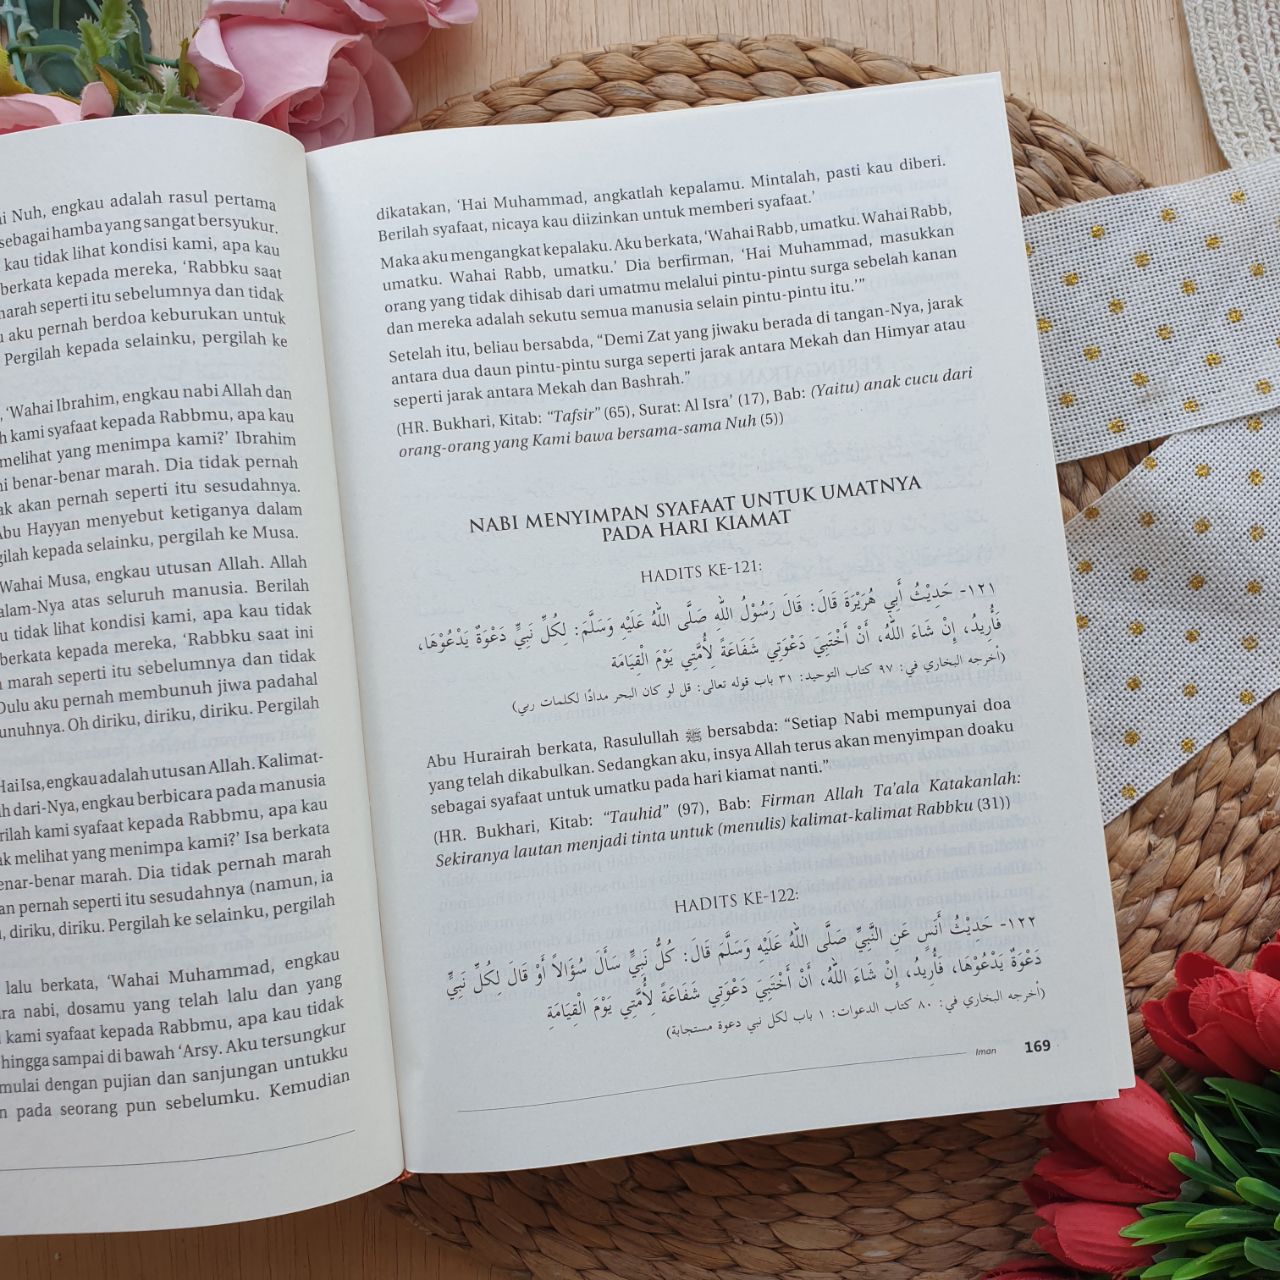 ai Nuh, engkau adalah rasul pertama
sebagai hamba yang sangat bersyukur.
kau tidak lihat kondisi kami, apa kau
berkata kepada mereka, ‘Rabbku saat
marah seperti itu sebelumnya dan tidak
aku pernah berdoa keburukan untuk
Pergilah kepada selainku, pergilah ke
‘Wahai Ibrahim, engkau nabi Allah dan
kami syafaat kepada Rabbmu, apa kau
melihat yang menimpa kami?’ Ibrahim
benar-benar marah. Dia tidak pernah
akan pernah seperti itu sesudahnya.
Abu Hayyan menyebut ketiganya dalam
gilah kepada selainku, pergilah ke Musa.
Wahai Musa, engkau utusan Allah. Allah
alam-Nya atas seluruh manusia. Berilah
tidak lihat kondisi kami, apa kau tidak
berkata kepada mereka, ‘Rabbku saat ini
marah seperti itu sebelumnya dan tidak
Dulu aku pernah membunuh jiwa padahal
unuhnya. Oh diriku, diriku, diriku. Pergilah
Hai Isa, engkau adalah utusan Allah. Kalimat-
dari-Nya, engkau berbicara pada manusia
rilah kami syafaat kepada Rabbmu, apa kau
melihat yang menimpa kami?’ Isa berkata
enar-benar marah. Dia tidak pernah marah
an pernah seperti itu sesudahnya (namun, ia
diriku, diriku. Pergilah ke selainku, pergilah
lalu berkata, ‘Wahai Muhammad, engkau
ara nabi, dosamu yang telah lalu dan yang
kami syafaat kepada Rabbmu, apa kau tidak
hingga sampai di bawah ‘Arsy. Aku tersungkur
mulai dengan pujian dan sanjungan untukku
n pada seorang pun sebelumku. Kemudian
dikatakan, ‘Hai Muhammad, angkatlah kepalamu. Mintalah, pasti kau diberi.
Berilah syafaat, nicaya kau diizinkan untuk memberi syafaat.’
Maka aku mengangkat kepalaku. Aku berkata, ‘Wahai Rabb, umatku. Wahai Rabb,
umatku. Wahai Rabb, umatku.’ Dia berfirman, ‘Hai Muhammad, masukkan
orang yang tidak dihisab dari umatmu melalui pintu-pintu surga sebelah kanan
dan mereka adalah sekutu semua manusia selain pintu-pintu itu.’”
Setelah itu, beliau bersabda, “Demi Zat yang jiwaku berada di tangan-Nya, jarak
antara dua daun pintu-pintu surga seperti jarak antara Mekah dan Himyar atau
seperti jarak antara Mekah dan Bashrah.”
(HR. Bukhari, Kitab: “Tafsir” (65), Surat: Al Isra’ (17), Bab: (Yaitu) anak cucu dari
orang-orang yang Kami bawa bersama-sama Nuh (5))
NABI MENYIMPAN SYAFAAT UNTUK UMATNYA
PADA HARI KIAMAT
HADITS KE-121:
١٢١- حَدِيْثُ أَبِي هُرَيْرَةَ قَالَ: قَالَ رَسُوْلُ اللهِ صَلَّى اللهُ عَلَيْهِ وَسَلَّمَ: لِكُلِّ نَبِيٍّ دَعْوَةٌ يَدْعُوْهَا،
فَأُرِيدُ، إِنْ شَاءَ اللهُ، أَنْ أَخْتَبِيَ دَعْوَتِي شَفَاعَةً لِأُمَّتِي يَوْمَ الْقِيَامَةِ
(أخرجه البخاري في: ٩٧ كتاب التوحيد: ٣١ باب قوله تعالى: قل لو كان البحر مدادًا لكلمات ربي)
Abu Hurairah berkata, Rasulullah ﷺ bersabda: “Setiap Nabi mempunyai doa
yang telah dikabulkan. Sedangkan aku, insya Allah terus akan menyimpan doaku
sebagai syafaat untuk umatku pada hari kiamat nanti.”
(HR. Bukhari, Kitab: “Tauhid” (97), Bab: Firman Allah Ta’ala Katakanlah:
Sekiranya lautan menjadi tinta untuk (menulis) kalimat-kalimat Rabbku (31))
HADITS KE-122:
١٢٢- حَدِيْثُ أَنَسٍ عَنِ النَّبِيِّ صَلَّى اللهُ عَلَيْهِ وَسَلَّمَ قَالَ: كُلُّ نَبِيٍّ سَأَلَ سُؤَالاً أَوْ قَالَ لِكُلِّ نَبِيٍّ
دَعْوَةٌ يَدْعُوْهَا، فَأُرِيدُ، إِنْ شَاءَ اللهُ، أَنْ أَخْتَبِيَ دَعْوَتِي شَفَاعَةً لِأُمَّتِي يَوْمَ الْقِيَامَةِ
(أخرجه البخاري في: ٨٠ كتاب الدعوات: ١ باب لكل نبي دعوة مستجابة)
Iman 169